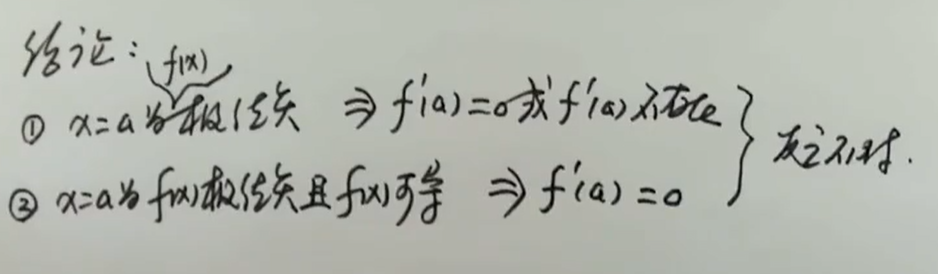 结论：
① x=a为f(x)极值点 ⇒ f'(a)=0或f'(a)不存在
② x=a为f(x)极值点且f(x)可导 ⇒ f'(a)=0
反之不对.